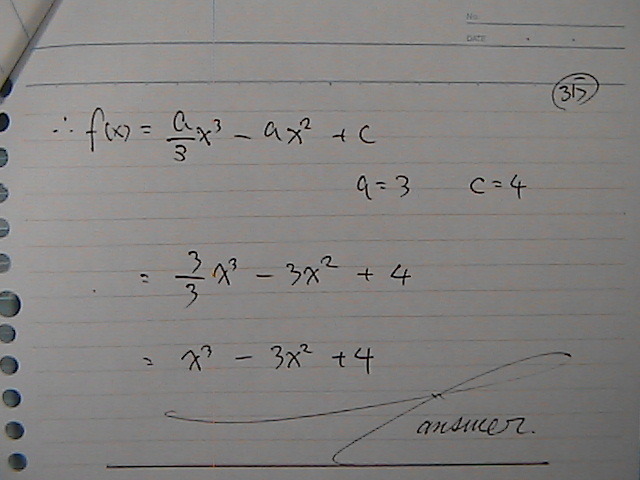 No.
DATE
∴ f(x) = a/3 x³ - ax² + c
a = 3 c = 4
= 3/3 x³ - 3x² + 4
= x³ - 3x² + 4
answer.